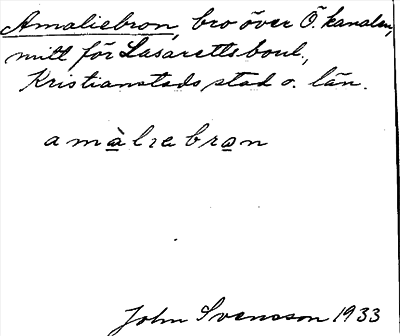 Amaliebron, bro över Ö. kanalen,
mitt för Lasarettsboul.,
Kristianstads stad o. län.
amàlɩebrωn
John Svensson 1933